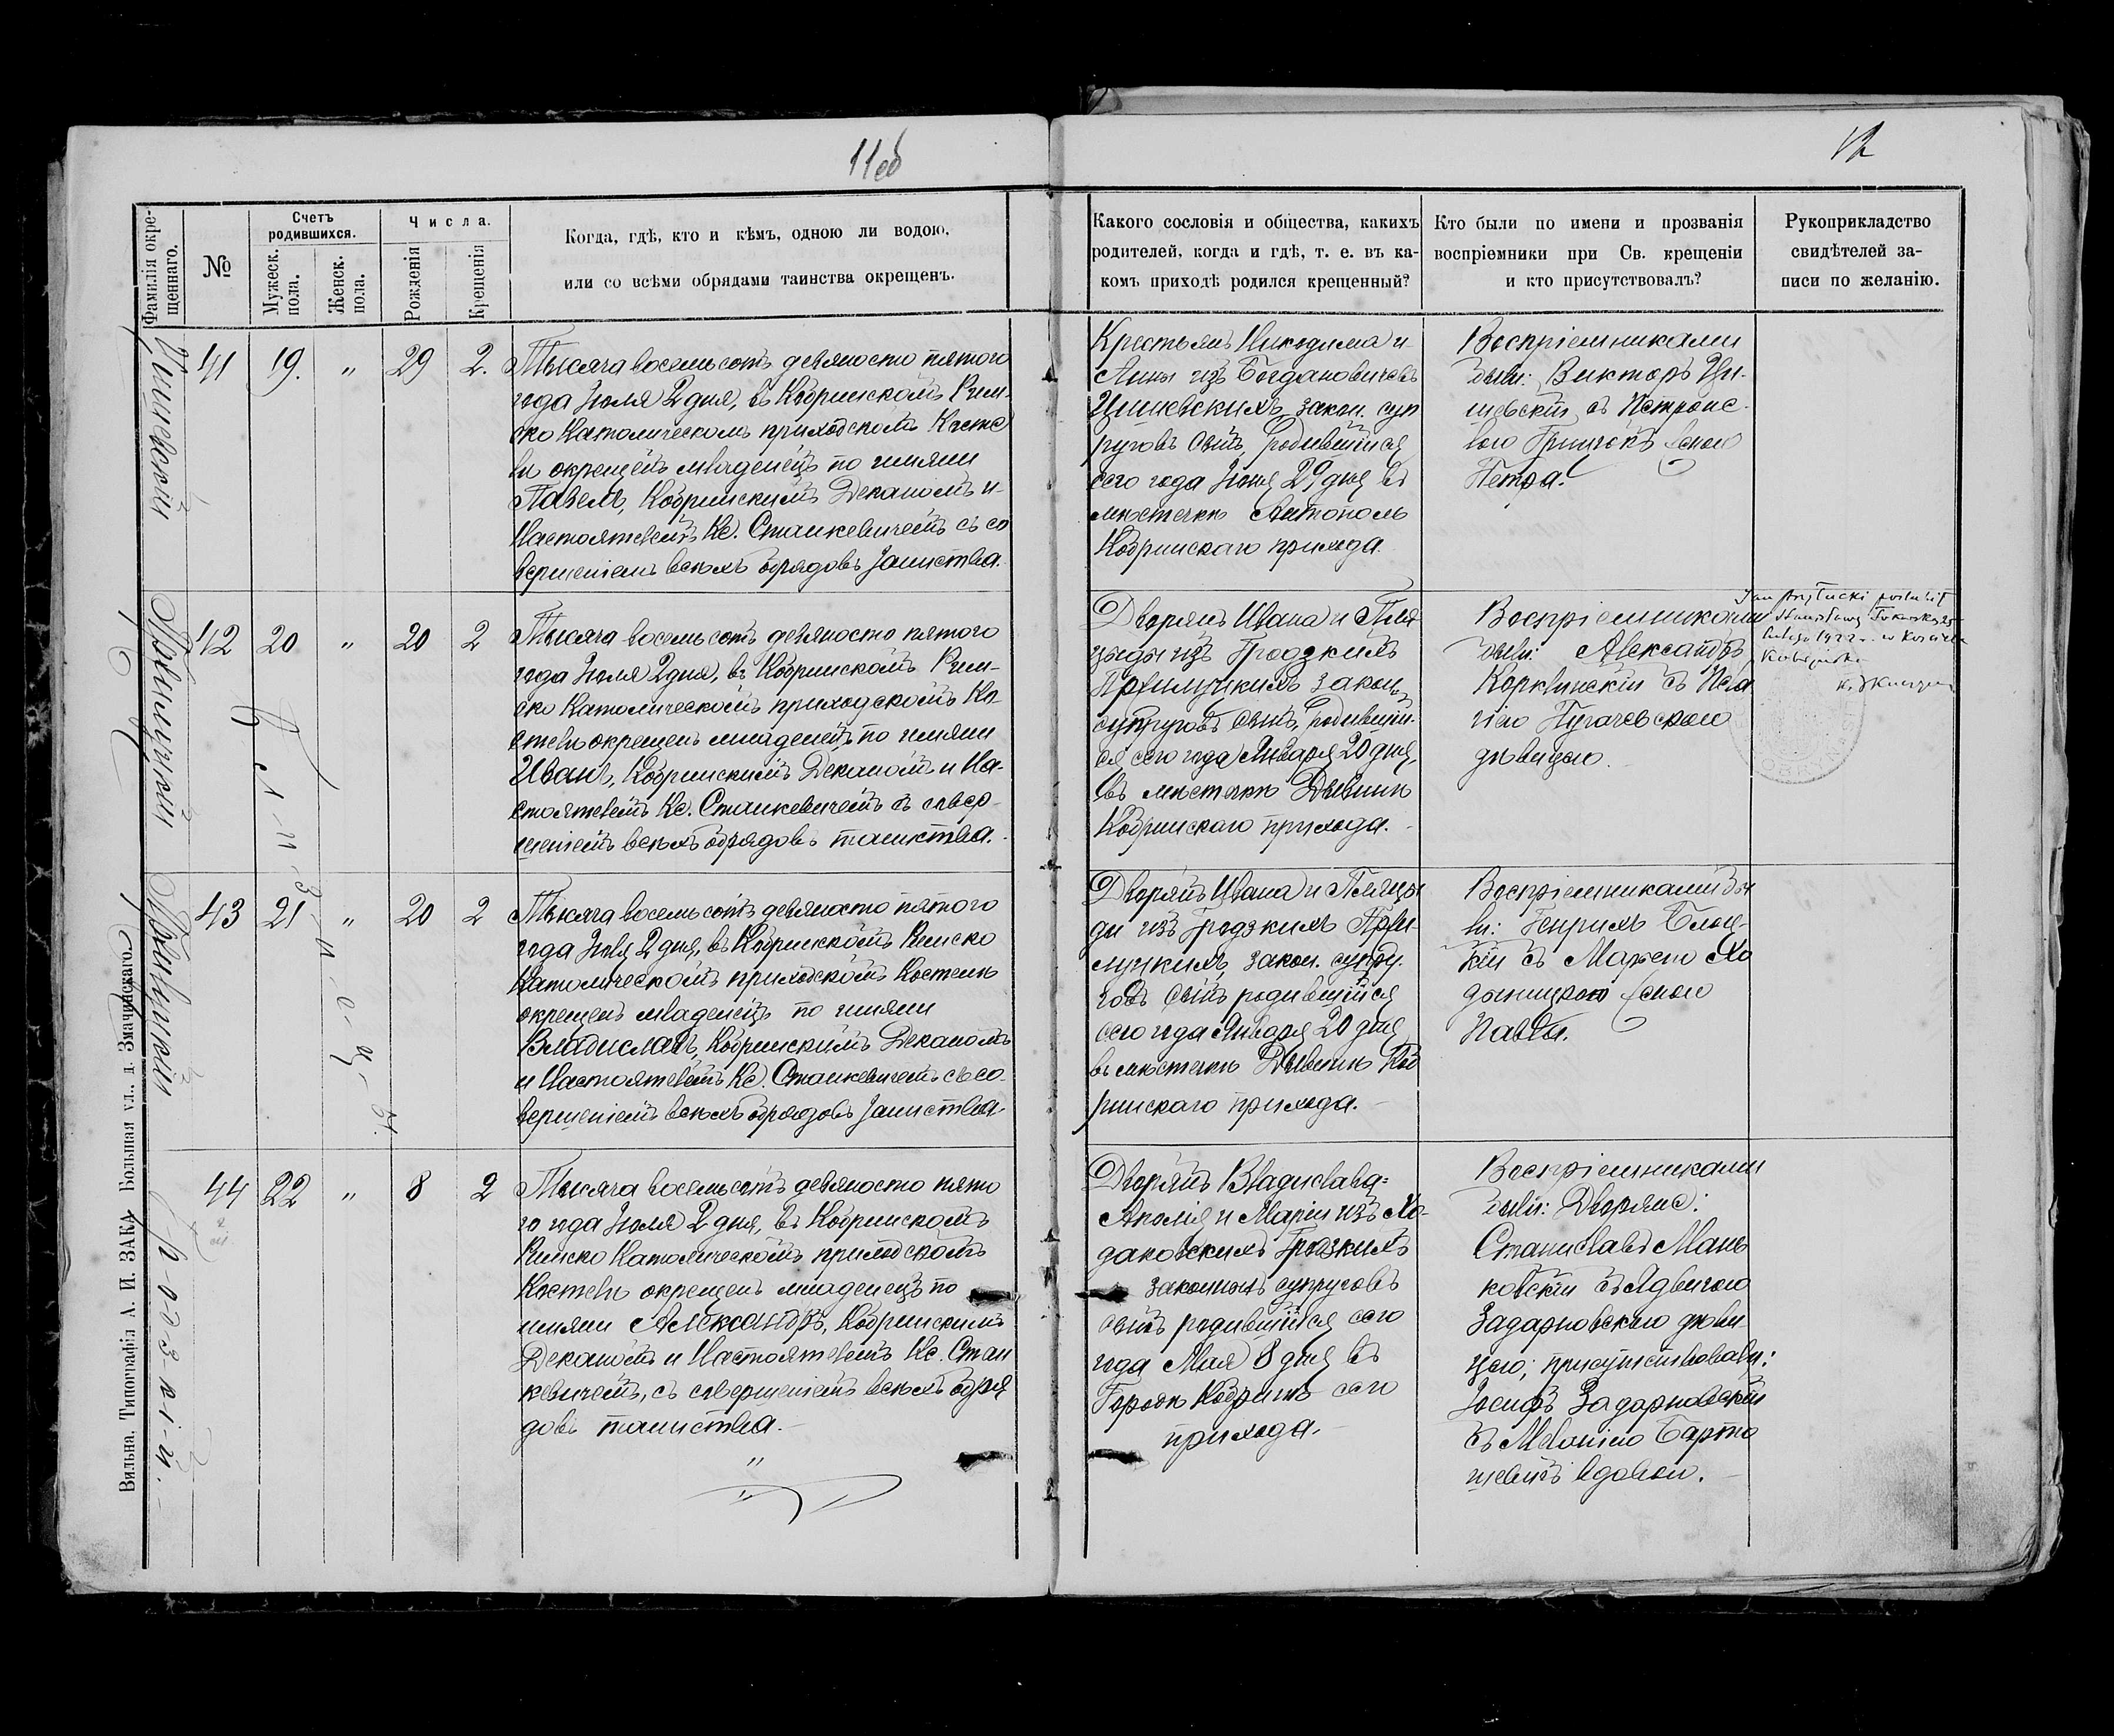 11об
12
Фамилія окре-
щеннаго.
№
Счетъ
родившихся.
Мужеск.
пола.
Женск.
пола.
Числа.
Рожденія
Крещенія
Когда, гдѣ, кто и кѣмъ, одною ли водою,
или со всѣми обрядами таинства окрещенъ.
Какого сословія и общества, какихъ
родителей, когда и гдѣ, т. е. въ ка-
комъ приходѣ родился крещенный?
Кто были по имени и прозванія
воспріемники при Св. крещеніи
и кто присутствовалъ?
Рукоприкладство
свидѣтелей за-
писи по желанію.
41 19. " 29 2.
Тысяча восемьсотъ девяносто пятого
года Іюля 2 дня, въ Кобринскомъ Рим-
ско Католическомъ приходскомъ Косте
лѣ окрещенъ младенецъ по имяни
Павелъ, Кобринскимъ Деканомъ и
Настоятелемъ Кс. Станкевичемъ съ со
вершеніемъ всѣхъ обрядовъ Таинства.
Крестьянъ Никодима и
Анны изъ Богдановичевъ
закон. суп
руговъ сынъ, родившійся
сего года Іюня 29 дня въ
мѣстечкѣ Антополь
Кобринскаго прихода.
Воспріемниками
были: Викторъ
съ Петронe-
лею женою
Петра.
Пржилуцкій
42 20 " 20 2
Тысяча восемьсотъ девяносто пятого
года Іюля 2 дня, въ Кобринскомъ Рим-
ско Католическомъ приходскомъ Ко-
стелѣ окрещенъ младенецъ по имяни
Иванъ, Кобринскимъ Деканомъ и На-
стоятелемъ Кс. Станкевичемъ съ совер-
шеніемъ всѣхъ обрядовъ таинства.
Дворянъ Ивана и Пля
цыды изъ Гродзкихъ
Пржилуцкихъ закон.
супруговъ сынъ, родившій-
ся сего года Января 20 дня,
въ мѣстечкѣ Дывинѣ
Кобринскаго прихода.
Воспріемниками
были: Александръ
съ
Пугачевскою
дѣвицею.
Jan Przyłucki poślubił
Stanisławę
lutego 1922 r. w Kościele
Близнецы.
Пржилуцкій
43 21 " 20 2
Тысяча восемьсотъ девяносто пятого
года Іюля 2 дня, въ Кобринскомъ Римско
Католическомъ приходскомъ Костелѣ
окрещенъ младенецъ по имяни
Владиславъ, Кобринскимъ Деканомъ
и Настоятелемъ Кс. Станкевичемъ съ со-
вершеніемъ всѣхъ обрядовъ Таинства.
Дворянъ Ивана и Пляцы
ды изъ Гродзкихъ Пржи-
луцкихъ, закон. супру-
говъ сынъ родившійся
сего года Января 20 дня
въ мѣстечкѣ Дывинѣ Коб
ринскаго прихода.
Воспріемниками бы
ли: Генрихъ
съ Маріею Хо
женою
Павла.
Гродзкій.
44 22 " 8 2
Тысяча восемьсотъ девяносто пято
го года Іюля 2 дня, въ Кобринскомъ
Римско Католическомъ приходскомъ
Костелѣ окрещенъ младенецъ по
имяни Александръ, Кобринскимъ
Деканомъ и Настоятелемъ Кс. Стан
кевичемъ, съ совершеніемъ всѣхъ обря
довъ таинства.
Дворянъ Владислава-
и Маріи изъ Хо-
даковскихъ Гродзкихъ
законныхъ супруговъ
сынъ родившійся сего
года Мая 8 дня въ
Городѣ Кобринѣ сего
прихода.
Воспріемниками
были: Дворяне:
Станиславъ Мань
ковскій съ Ядвигою
Задарновскою дѣви
цею; присутствовали:
Іосифъ Задарновскій
съ Меланіею Барто
шевичъ вдовою.
Вильна. Типографія А. И. ЗАКА Большая ул., д. Змачинскаго.